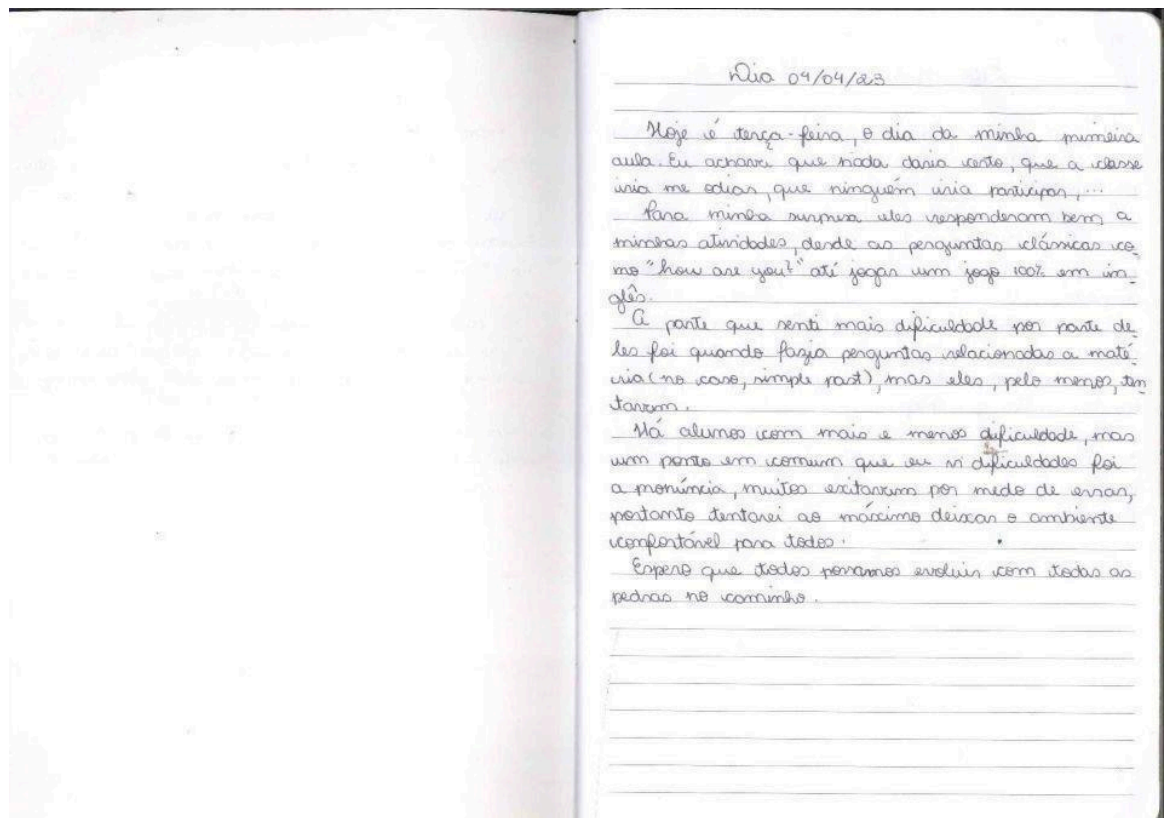 Dia 04/04/23
Hoje é terça-feira, o dia da minha primeira
aula. Eu achava que nada daria certo, que a classe
iria me odiar, que ninguém iria participar, ...
Para minha surpresa eles responderam bem a
minhas atividades, desde as perguntas clássicas co
mo "how are you?" até jogar um jogo 100% em in_
glês.
A parte que senti mais dificuldade por parte de
les foi quando fazia perguntas relacionadas a maté_
ria (no caso, simple past), mas eles, pelo menos, ten
tavam.
Há alunos com mais e menos dificuldade, mas
um ponto em comum que eu vi dificuldades foi
a pronúncia, muitos exitavam por medo de errar,
portanto tentarei ao máximo deixar o ambiente
confortável para todos.
Espero que todos possamos evoluir com todas as
pedras no caminho.